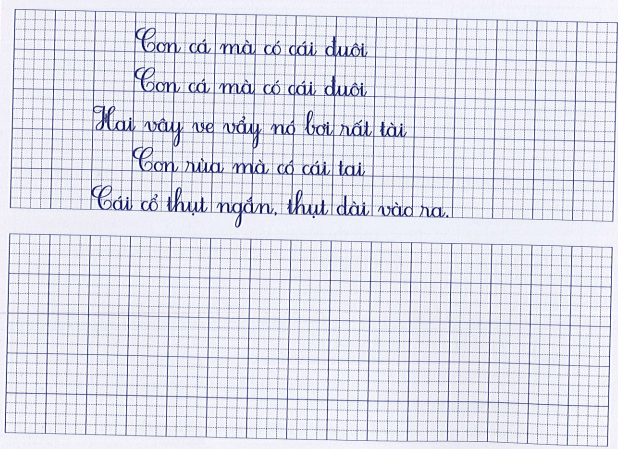 Con cá mà có cái đuôi
Con cá mà có cái đuôi
Hai vây ve vẩy nó bơi rất tài
Con rùa mà có cái tai
Cái cổ thụt ngắn, thụt dài vào ra.